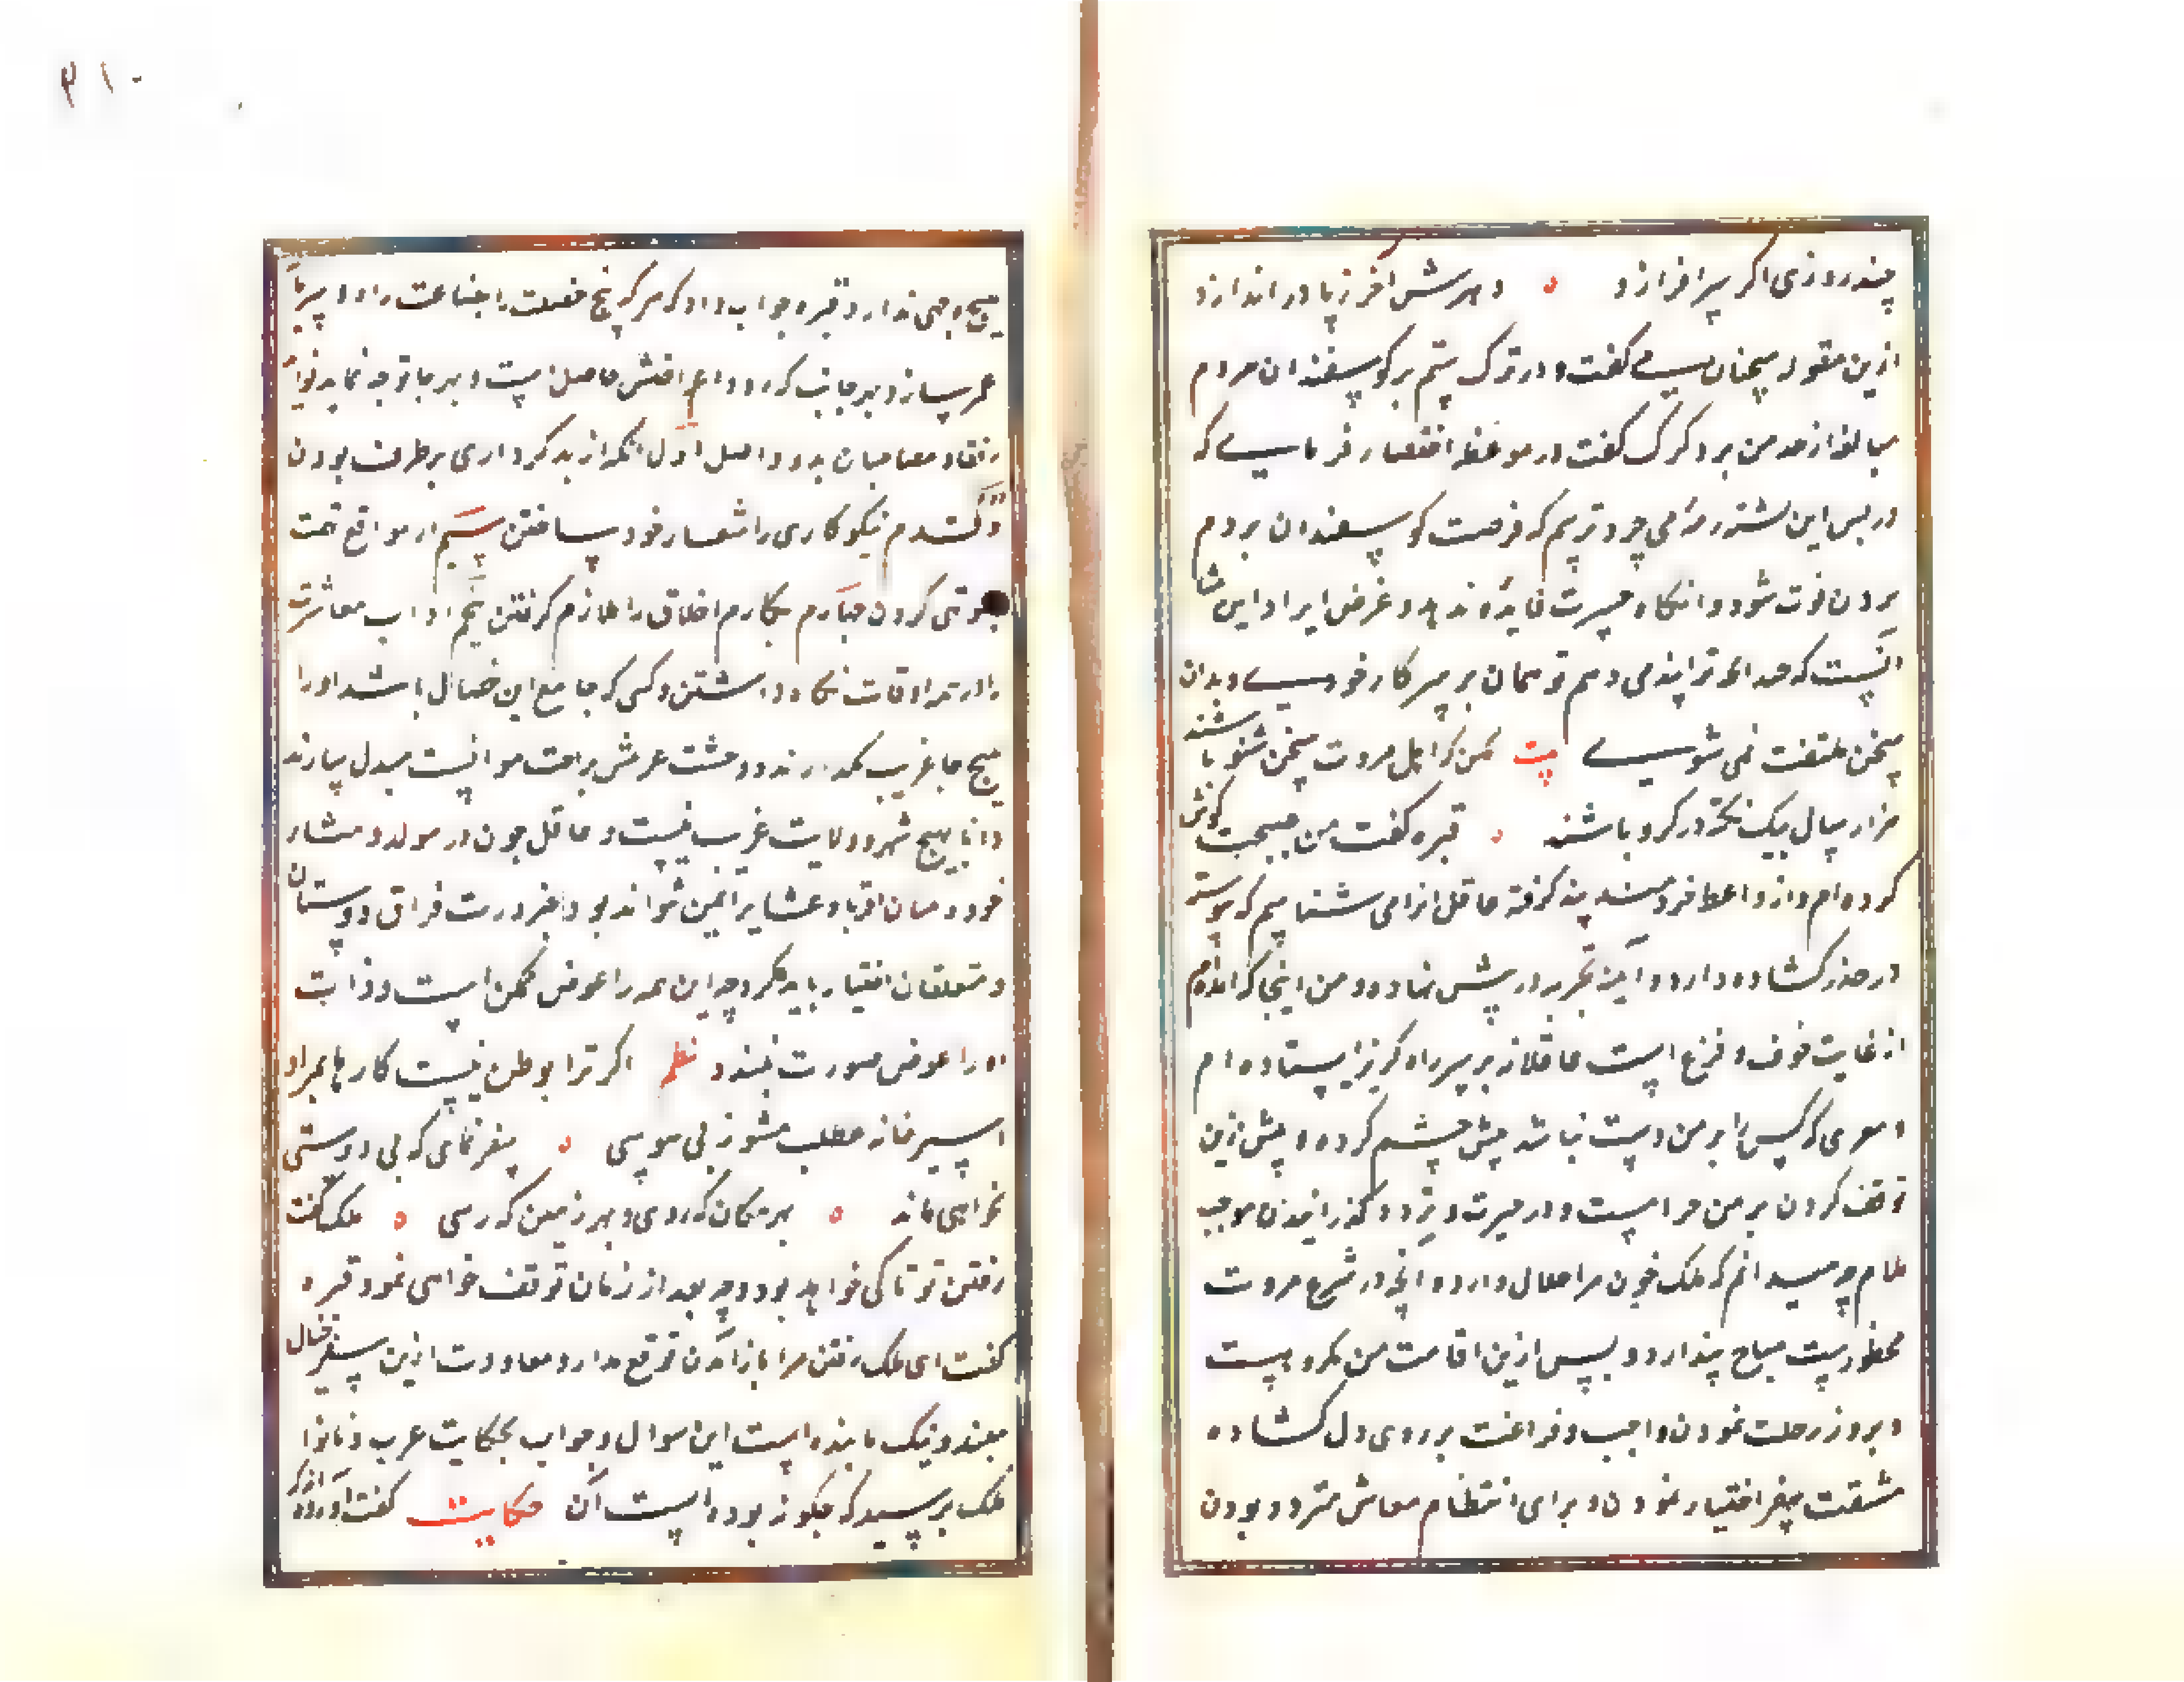 چند روزی اگر سرافرازد ه دهرش آخر ز پا دراندازد
ازین مقوله سخنان بسی گفت و در ترک ستم بر گوسفندان مردم
مبالغه از حد من برد گرگ گفت در موعظه اختصار فرمایی که
در پس این پشته رمهٔ می‌چرد ترسم که فرصت گوسفندان بردم
بردن فوت شود و آنگاه حسرت فایده ندهد و غرض ایراد این
آنست که چندانکه ترا پند می‌دهم تو همان بر سر کار خودی و بدان
سخن ملتفت نمی‌شوی بیت مکن که اهل مروت سخن شنو باشند
هزار سال بیک نکته در گرو باشند ه قبره گفت من نصیحت گوش
کرده‌ام و از واعظ خرد پند گرفته عاقل انرا می‌شناسیم که پیوسته
در حذر گشاده دارد و آینه تجربه در پیش نهاده و من اینجا که آمده‌ام
از غایت خوف و فزع است عاقلانه بر سر راه گریز ایستاده‌ام
و سری که کس را بر من دست نباشد پیش چشم کرده و پیش ازین
توقف کردن بر من حرامست و در حیرت و تردد گذرانیدن موجب
ملام چه میدانم که ملک خون مرا حلال دارد و آنچه در شرع مروت
محظورست مباح پندارد و بسپس ازین اقامت من مکروهست
و بروز رحلت نمودن واجب و فراغت بر روی دل گشاده
مشقت سفر اختیار نمودن و برای انتظام معاش متردد بودن
۲۱۰
هیچ وجهی ندارد قبره جواب داد که هر که پنج خصلت را بضاعت راه و سرمایهٔ
عمر سازد بهر جانب که رود اغراضش حاصل است و بهر جا توجه نماید
رفقا و مصاحبان بدو واصل اول آنکه از بدکرداری برطرف بودن
دوم نیکوکاری را شعار خود ساختن سیم از مواقع تهمت
تهی کردن چهارم مکارم اخلاق را ملازم گرفتن پنجم آداب معاشرت
را در همه اوقات نگاه داشتن و کسی که جامع این خصال باشد او را
هیچ جا غریب نگذارند و وحشت غربتش براحت موانست مبدل سازند
دانا بهیچ شهر و ولایت غریب نیست و عاقل چون در مولد و منشاء
خود و میان اقربا و عشایر ایمن نتواند بود بضرورت فراق دوستان
و متعلقان اختیار باید کرد چه این همه را عوض ممکن است و ذات
او را عوض صورت نبندد نظم اگر ترا بوطن نیست کارها بمراد
اسیر خانه مطلب مشو ز بی‌هوسی ه سفر نمای که بی دوستی
نخواهی ماند ه بهر مکان که روی و بهر زمین که رسی ه ملک گفت
رفتن تو تا کی خواهد بود و چه بعد از زمان توقف خواهی نمود قبره
گفت ای ملک رفتن مرا باز آمدن توقع مدار و معاودت ازین سفر خیال
مبند و نیک مانندهٔ است این سوال و جواب بحکایت عرب و نانوا
ملک پرسید که چگونه بوده است آن حکایت گفت آورده‌اند که